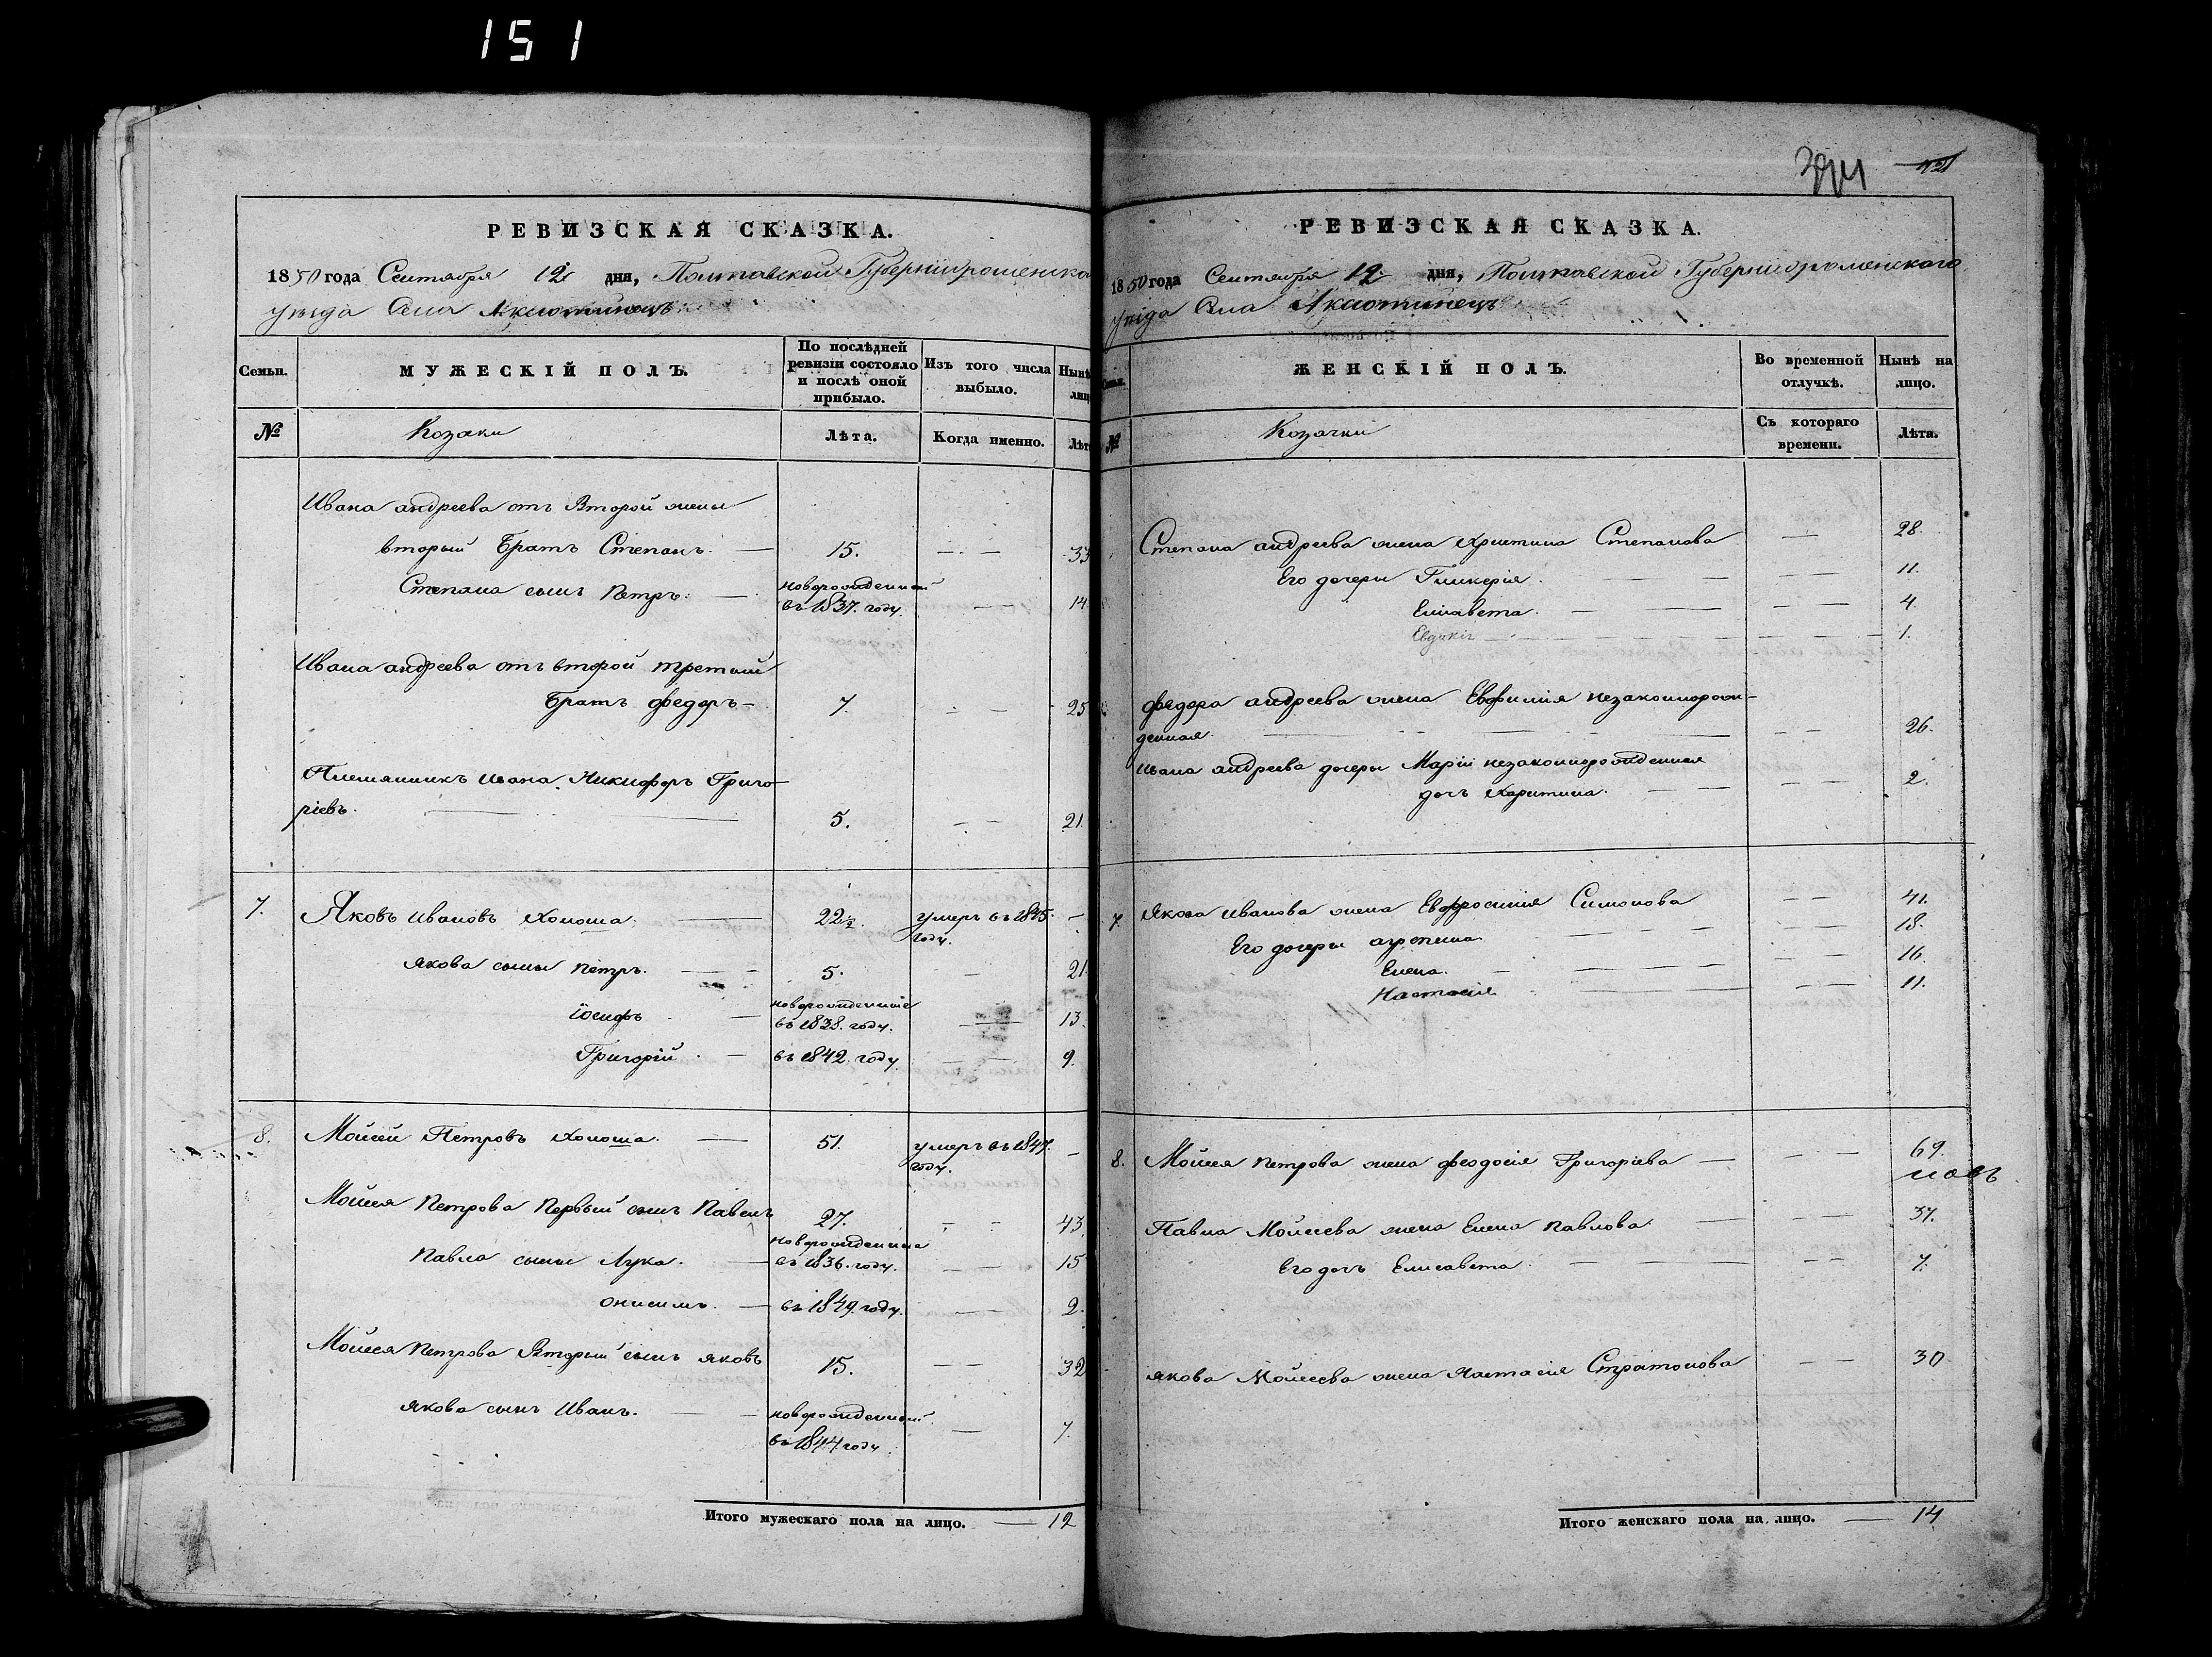 151
РЕВИЗСКАЯ СКАЗКА.
1850 года Сентября 12 дня, Полтавской Губерніи роменска
уѣзда Села Аксютинецъ
Семьи.
МУЖЕСКІЙ ПОЛЪ.
По послѣдней ревизіи состояло и послѣ оной прибыло.
Изъ того числа выбыло.
Нынѣ лиц
№
Козаки
Лѣта.
Когда именно.
Лѣт
Ивана андреева отъ Второй жены
вторый Братъ Степанъ. — 15. — — 33
Степана сынъ Петръ. — новорожденный
въ 1837. году. — — 14
Ивана андреева отъ второй третій
Братъ федоръ — 7. — — 25
Племянникъ Ивана Никифоръ Григо-
ріевъ. — — 5. — — 21.
7. Яковъ Ивановъ Холоша. — 22½. умеръ въ 1835. —
году.
Якова сыны Петръ. — — 5. — 21.
новорожденные
Іосифъ — въ 1838. году. — 13.
Григорій. — въ 1842. году. — — 9.
8. Мойсей Петровъ Холоша. — 51. умеръ въ 1847. —
году.
Мойсея Петрова Первый сынъ Павелъ 27. — — 43
новорожденные
Павла сыны Лука. — въ 1836. году. — — 15
Онисимъ. — въ 1849. году. — — 2.
Мойсея Петрова Вторый сынъ яковъ 15. — — 32
якова сынъ Иванъ. — — новорожденный — 7.
въ 1844 году
Итого мужескаго пола на лицо. — 12
121
РЕВИЗСКАЯ СКАЗКА.
1850 года Сентября 12 дня, Полтавской Губерніи роменского
уѣзда Села Аксютинецъ
ЖЕНСКІЙ ПОЛЪ.
Во временной отлучкѣ.
Нынѣ на лицо.
№
Козачки
Съ котораго времени.
Лѣта.
Степана андреева жена Христина Степанова — 28.
Его дочери Гликерія. — — — — 11.
Елисавета. — — — — 4.
Евдокія — — — — 1.
федора андреева жена Евфимія незаконнорож-
денная. — — — — — 26.
Ивана андреева дочери Маріи незаконнорожденная
дочь Харитина. — — — — 2.
7. Якова Иванова жена Евфросинія Симонова — — 41.
Его дочери агрепина — — — — 18.
Елена. — — — — 16.
Настасія — — — — 11.
8. Мойсея Петрова жена феодосія Григоріева — — — 69.
Павла Мойсеева жена Елена Павлова. — — — 37.
Его дочь Елисавета. — — — — 7.
якова Мойсеева жена Настасія Стратонова — — 30.
Итого женскаго пола на лицо. — 14